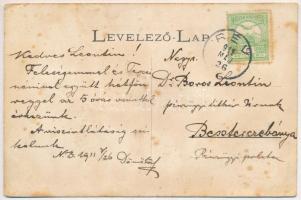 LEVELEZŐ-LAP
Kedves Leontin!
Feleségemmel és Terus
nénivel együtt hétfőn
reggel az 5 órás vonattal
érkezünk.
A viszontlátásig csó-
kolunk
N.B. 1911 V/26
Nagys.
Dr Boros Leontin
pénzügyi titkár Úrnak
Besztercebánya
Pénzügyi palota